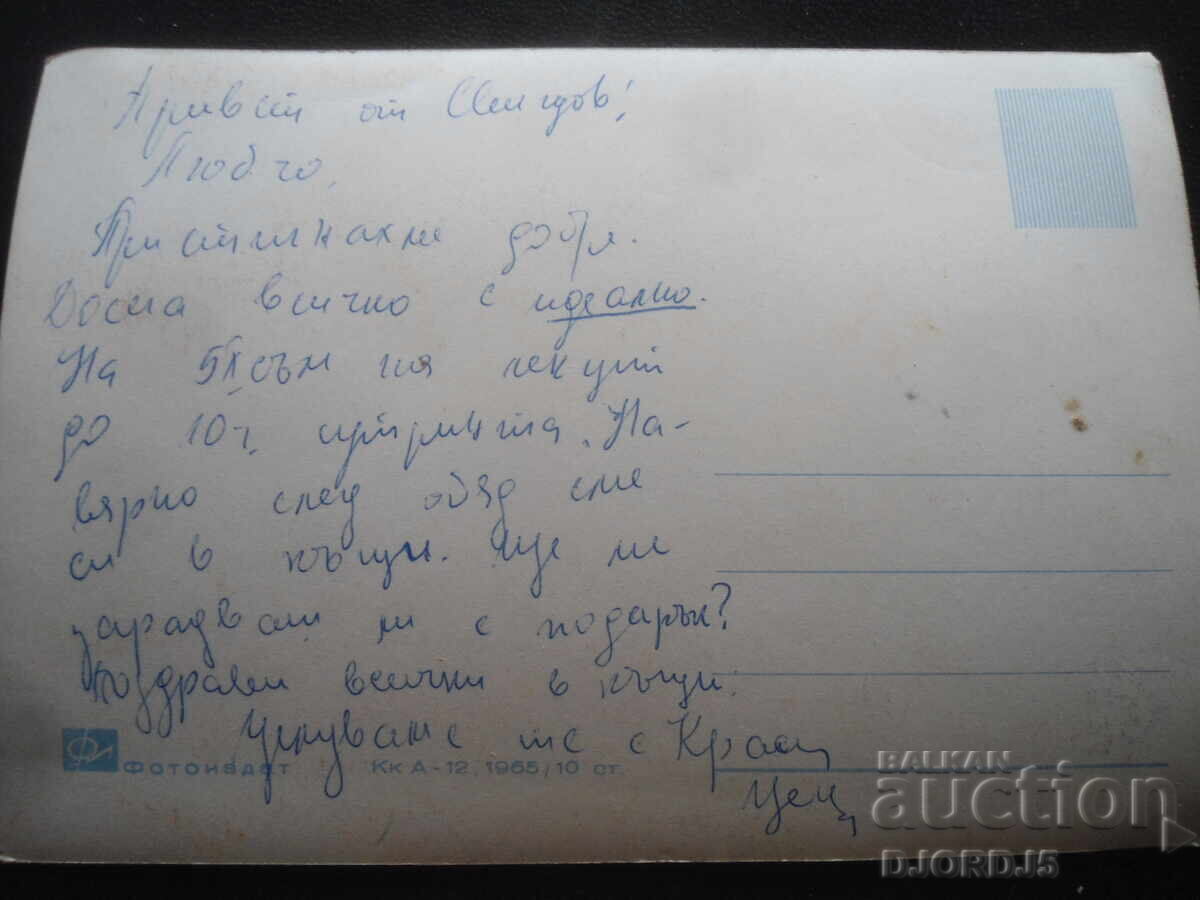 Привет от Свищов!
Любчо,
Пристигнахме добре.
Досега всичко е идеално.
На 5 юни съм на лекции
до 10 ч. сутринта. На-
вярно след обяд сме
си в къщи. Ще ме
зарадваш ли с подарък?
Поздрави всички в къщи.
Целуваме те с Краси
Цец
ФОТОИЗДАТ Кк А-12, 1965/10 ст.
BALKAN
auction
DJORDJ5